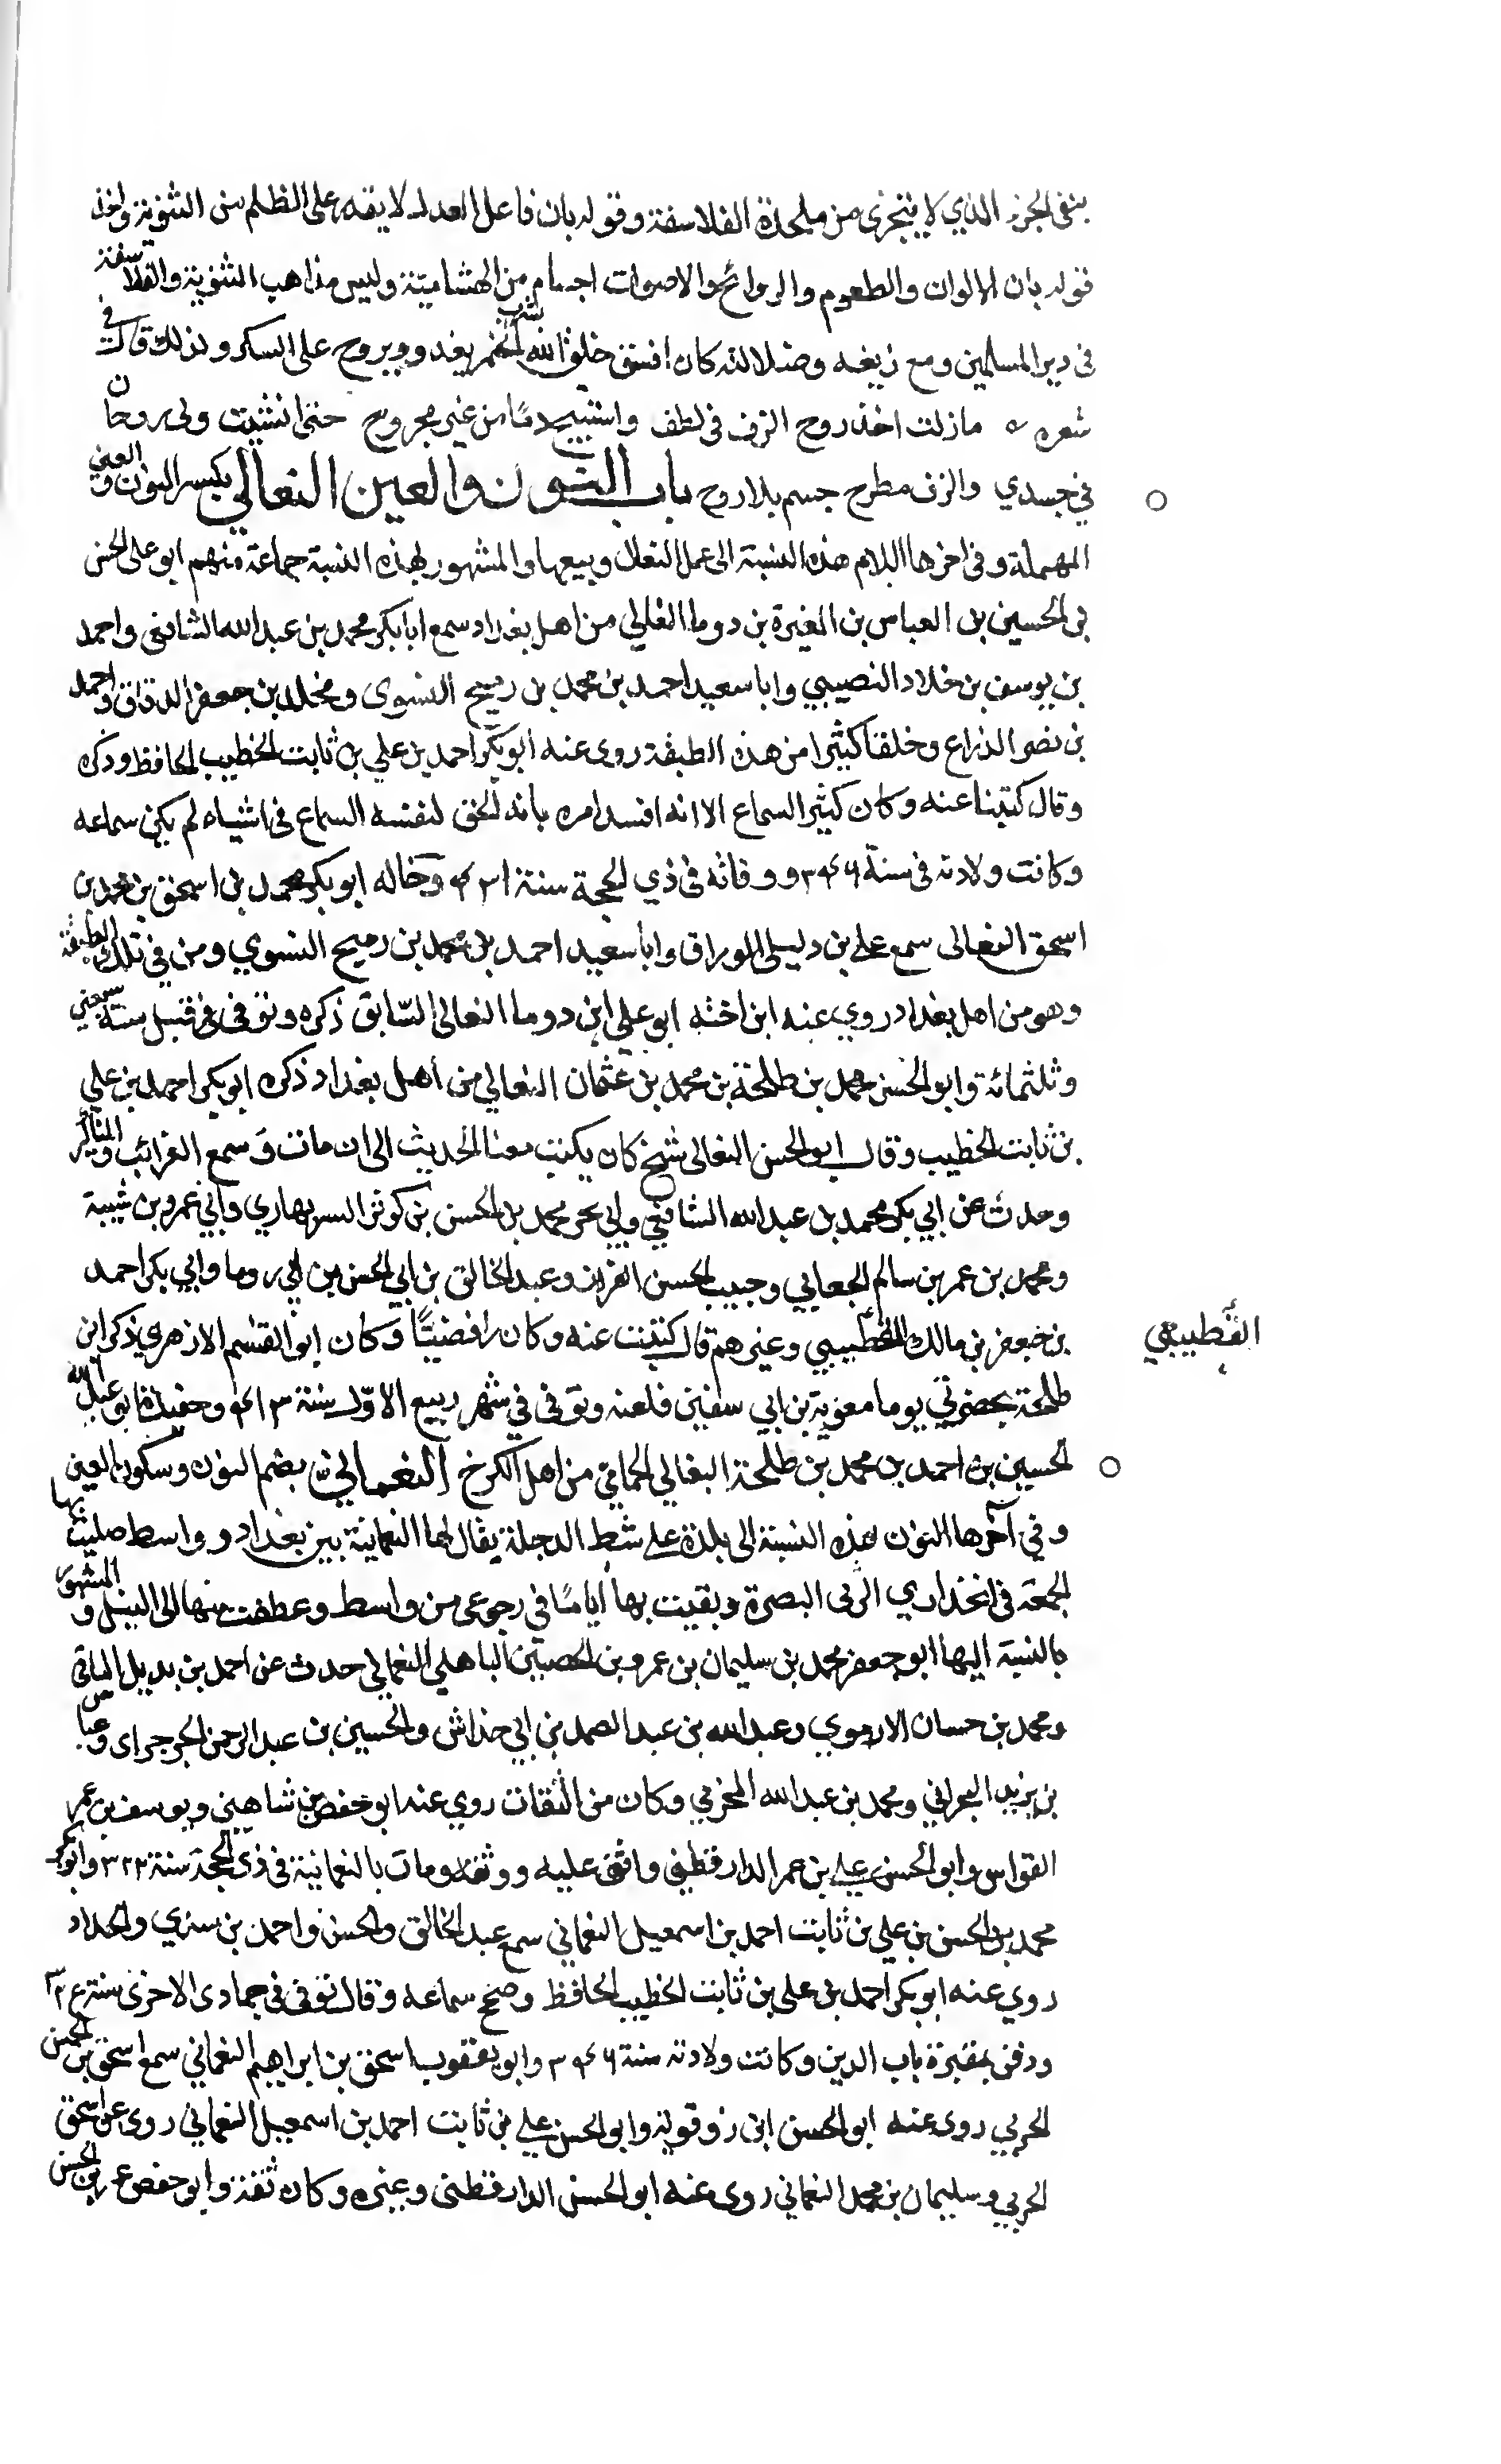 بنفي الجزء الذي لا يتجزى من ملحدة الفلاسفة وقوله بان فاعل العدل لا يقدر على الظلم من الثنوية واخذ
قوله بان الالوان والطعوم والروائح والاصوات اجسام من الهشامية ولبس مذاهب الثنوية والفلاسفة
في دين المسلمين ومع زيغه وضلالته كان افسق خلق الله لشرب الخمر يغدو ويروح على السكر ولذلك قال في
شعره ه مازلت اخذ روح الزق في لطف واستبيح دما من غير مجروح حتى انثنيت ولي روحان
في جسدي والزق مطرح جسم بلا روح باب النون والعين النعالي بكسر النون والعين
المهملة وفي اخرها اللام هذه النسبة الى عمل النعال وبيعها والمشهور بهذه النسبة جماعة منهم ابو على الحسن
بن الحسين بن العباس بن المغيرة بن دوما النعالي من اهل بغداد سمع ابا بكر محمد بن عبد الله الشافعي واحمد
بن يوسف بن خلاد النصيبي وابا سعيد احمد بن محمد بن رميح النسوي ومخلد بن جعفر الدقاق واحمد
بن نصر الذراع وخلقا كثيرا من هذه الطبقة روى عنه ابو بكر احمد بن علي بن ثابت الخطيب الحافظ وذكره
وقال كتبنا عنه وكان كثير السماع الا انه افسد امره بانه الحق لنفسه السماع في اشياء لم يكن سماعه
وكانت ولادته في سنة ٣٤٦ ووفاته في ذي الحجة سنة ٤٣١ وخاله ابو بكر محمد بن اسحق بن محمد بن
اسحق النعالى سمع علي بن دليل الوراق وابا سعيد احمد بن محمد بن رميح النسوي ومن في تلك الطبقة
وهو من اهل بغداد روي عنه ابن اخته ابو علي ابن دوما النعالى السابق ذكره وتوفى في قبل سنة سبعين
وثلثمائة وابو الحسن محمد بن طلحة بن محمد بن عثمان النعالي من أهل بغداد ذكره ابو بكر احمد بن علي
بن ثابت الخطيب وقال ابو الحسن النعالى شيخ كان يكتب معنا الحديث الى ان مات وسمع الغرائب والمناكير
وحدث عن ابي بكر محمد بن عبد الله الشافعي وابي بحر محمد بن الحسن بن كوثر البربهاري وابي عمرو بن شيبة
ومحمد بن عمر بن سالم الجعابي وحبيب الحسن القزاز وعبد الخالق بن ابي الحسن بن ابي روما وابي بكر احمد
بن جعفر بن مالك القطيعي وغيرهم قال كتبت عنه وكان رافضيًّا وكان ابو القسم الازهري يذكر ابن
القَطيعي
طلحة بحضرتي يوما معوية بن ابي سفين فلعنه وتوفى في شهر ربيع الاول سنة ٤١٣ وحفيده ابو عبد الله
الحسين بن احمد بن محمد بن طلحة النعالي الحمامي من اهل الكرخ النعماني بضم النون وسكون العين
وفي آخرها النون هذه النسبة الى بلدة على شط الدجلة يقال لها النعمانية بين بغداد وواسط صليت بها
الجمعة في انحداري الى البصرة وبقيت بها أيامًا في رجوعي من واسط وعطفت منها الى النيل والمشهور
بالنسبة اليها ابو جعفر محمد بن سليمان بن عمرو بن الحصين الباهلي النعمالي حدث عن احمد بن بديل اليافي
ومحمد بن حسان الاموي وعبد الله بن عبد الصمد بن ابي خداش والحسين بن عبد الرحمن الجرجراى وعباس
بن يزيد البحراني ومحمد بن عبد الله المخرمي وكان من الثقات روي عنه ابو حفص بن شاهين ويوسف بن عمر
القواس وابو الحسن علي بن عمر الدارقطني واثنى عليه ووثقه ومات بالنعمانية في ذي الحجة سنة ٣٢٢ وابو بكر
محمد بن الحسن بن علي بن ثابت احمد بن اسمعيل النعماني سمع عبد الخالق والحسن واحمد بن سندي والحداد
روي عنه ابو بكر احمد بن على بن ثابت الخطيب الحافظ وصحح سماعه وقال توفى في جمادى الاخرى سنة
ودفن بمقبرة باب الدين وكانت ولادته سنة ٣٤٦ وابو يعقوب اسحق بن ابراهيم النعماني سمع اسحق بن الحسن
الحربي روى عنه ابو الحسن ابن زرقويه وابو الحسن علي بن ثابت احمد بن اسمعيل النعماني روى عن اسحق
الحربي وسليمان بن محمد النعماني روى عنه ابو الحسن الدارقطنى وغيره وكان ثقة وابو حفص عمر بن الحسن